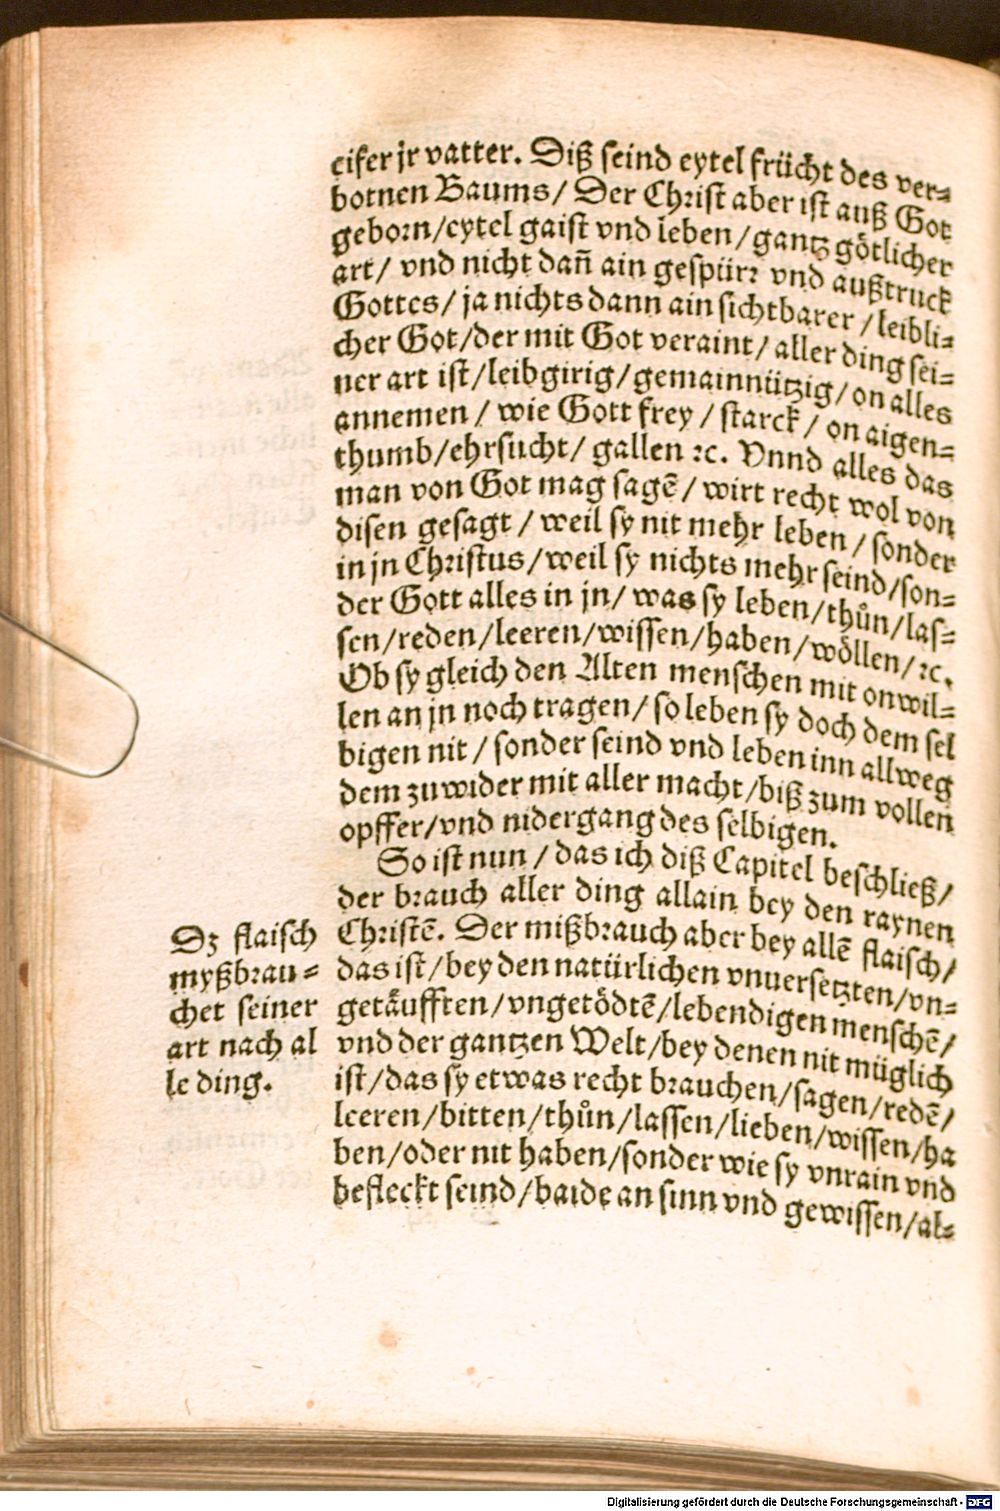 cifer jr vatter. Diß seind eytel frücht des ver⸗
botnen Baums/ Der Christ aber ist auß Got
geborn/eytel gaist vnd leben/gantz götlicher
art/ vnd nicht dañ ain gespürr vnd außtruck
Gottes/ ja nichts dann ain sichtbarer/leibli⸗
cher Got/der mit Got veraint/aller ding sei⸗
ner art ist/leibgirig/gemainnützig/on alles
annemen/ wie Gott frey/ starck/ on aigen⸗
thumb/ehrsucht/ gallen ꝛc. Vnnd alles das
man von Got mag sagē/ wirt recht wol von
disen gesagt/ weil sy nit mehr leben/ sonder
in jn Christus/weil sy nichts mehr seind/son⸗
der Gott alles in jn/ was sy leben/thůn/las⸗
sen/reden/leeren/wissen/haben/wöllen/ꝛc.
Ob sy gleich den Alten menschen mit onwil⸗
len an jn noch tragen/ so leben sy doch dem sel
bigen nit/ sonder seind vnd leben inn allweg
dem zuwider mit aller macht/biß zum vollen
opffer/vnd nidergang des selbigen.
So ist nun/ das ich diß Capitel beschließ/
der brauch aller ding allain bey den raynen
Christē. Der mißbrauch aber bey allē flaisch/
das ist/bey den natürlichen vnuersetzten/vn⸗
getäufften/vngetödtē/lebendigen menschē/
vnd der gantzen Welt/bey denen nit müglich
ist/das sy etwas recht brauchen/sagen/redē/
leeren/bitten/thůn/lassen/lieben/wissen/ha
ben/oder nit haben/sonder wie sy vnrain vnd
befleckt seind/baide an sinn vnd gewissen/al⸗
Dz flaisch
myßbrau⸗
chet seiner
art nach al
le ding.
Digitalisierung gefördert durch die Deutsche Forschungsgemeinschaft - DFG